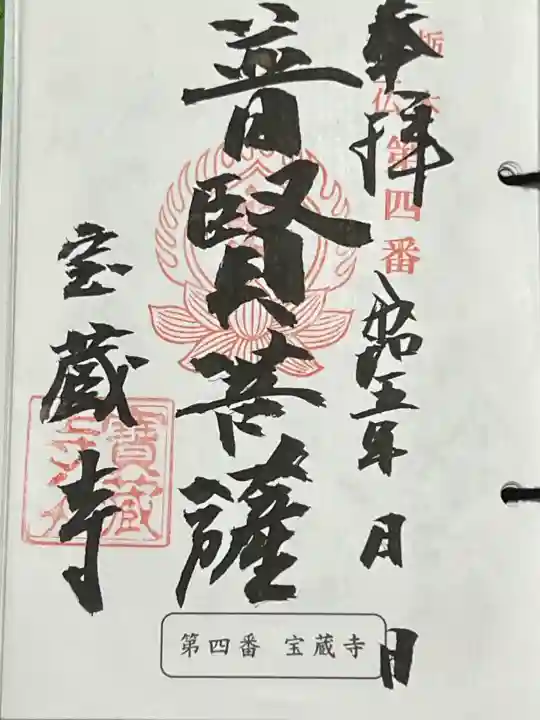 奉拝
栃木
仏第四番
令和五年 月 日
普賢菩薩
宝蔵寺
寶蔵
第四番 宝蔵寺